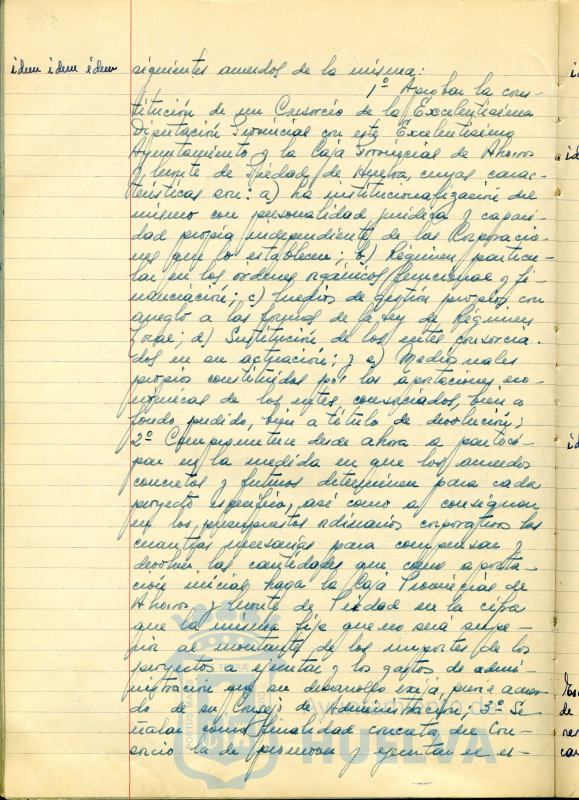 idem idem idem
siguientes acuerdos de la misma:
1º Aprobar la cons-
titución de un Consorcio de la Excelentísima
Diputación Provincial con este Excelentísimo
Ayuntamiento y la Caja Provincial de Ahorros
y Monte de Piedad de Huelva, cuyas carac-
terísticas son: a) La institucionalización del
mismo con personalidad jurídica y capaci-
dad propia independiente de las Corporacio-
nes que lo establecen; b) Régimen particu-
lar en los ordenes orgánicos funcional y fi-
nanciación; c) medios de gestión propios con
arreglo a las formas de la Ley de Régimen
Local; d) Sustitución de los entes consorcia-
dos en su actuación; y e) Medios reales
propios constituidos por las aportaciones eco-
nómicas de los entes consorciados, bien a
fondo perdido, bien a título de devolución;
2º Comprometerse desde ahora a partici-
par en la medida en que los acuerdos
concretos y futuros determinen para cada
proyecto específico, así como a consignar
en los presupuestos ordinarios corporativos las
cuantías necesarias para compensar y
devolver las cantidades que como aporta-
ción inicial haga la Caja Provincial de
Ahorros y Monte de Piedad en la cifra
que la misma fije que no será supe-
rior al montante de los importes de los
proyectos a ejecutar y los gastos de admi-
nistración que su desarrollo exija, previo acuer-
do de su Consejo de Administración; 3º Se-
ñalar como finalidad concreta del Con-
sorcio la de promover y ejecutar el es-
Ayuntamiento de
HUELVA